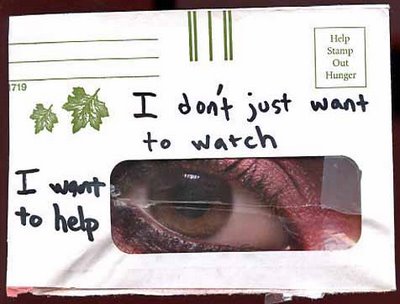 Help
Stamp
Out
Hunger
1719
I don't just want
to watch
I want
to help